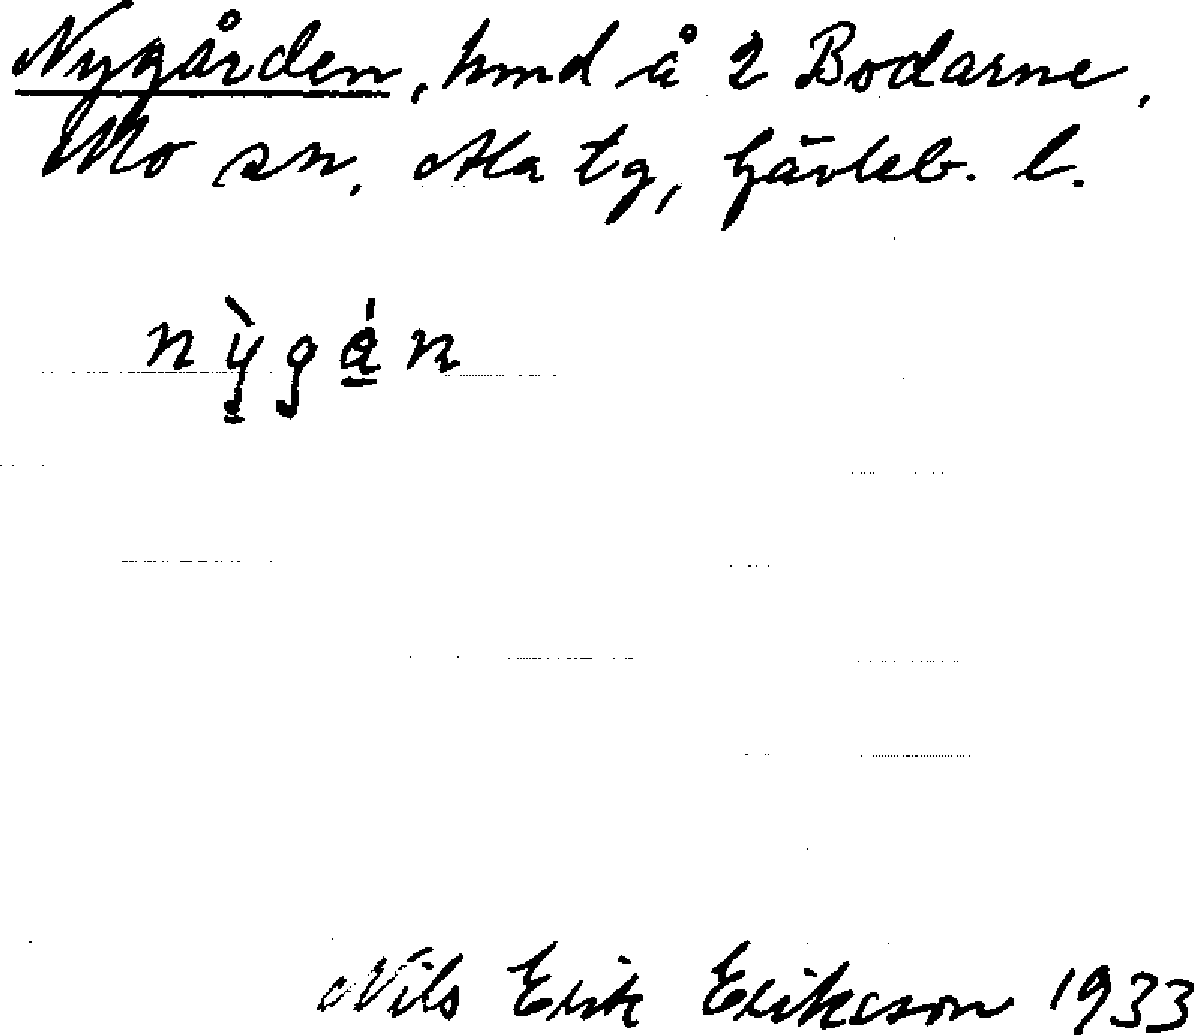 Nygården, hmd å 2 Bodarne,
Mo sn. Ala tg, Gävleb. l.
nỳgá̱n
Nils Erik Eriksson 1933